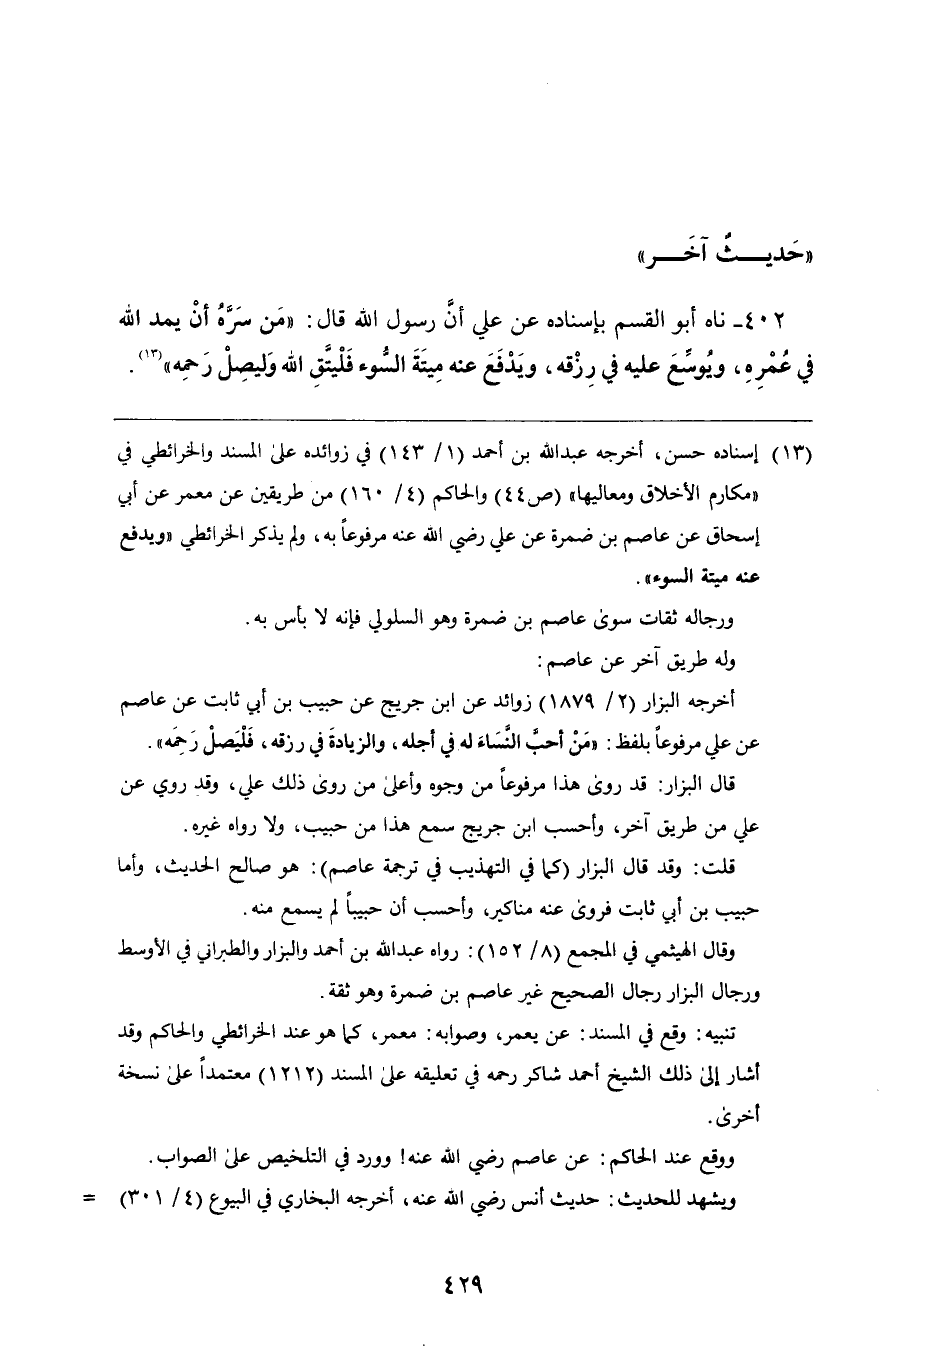 «حَديـــثٌ آخَـــر»
٤٠٢ـ ناه أبو القسم بإسناده عن علي أنَّ رسول الله قال: «مَن سَرَّهُ أنْ يمد الله
في عُمْرِهِ، ويُوسِّعَ عليه في رِزْقه، ويَدْفَعَ عنه مِيتَةَ السُّوء فَلْيتَّقِ الله وَليصِلْ رَحِمه»(١٣).
(١٣) إسناده حسن، أخرجه عبدالله بن أحمد (١/ ١٤٣) في زوائده على المسند والخرائطي في
«مكارم الأخلاق ومعاليها» (ص٤٤) والحاكم (٤/ ١٦٠) من طريقين عن معمر عن أبي
إسحاق عن عاصم بن ضمرة عن علي رضي الله عنه مرفوعاً به، ولم يذكر الخرائطي «ويدفع
عنه ميتة السوء».
ورجاله ثقات سوى عاصم بن ضمرة وهو السلولي فإنه لا بأس به.
وله طريق آخر عن عاصم:
أخرجه البزار (٢/ ١٨٧٩) زوائد عن ابن جريج عن حبيب بن أبي ثابت عن عاصم
عن علي مرفوعاً بلفظ: «مَنْ أحبَّ النَّسَاءَ له في أجله، والزيادةَ في رزقه، فَلْيَصلْ رَحِمَه».
قال البزار: قد روى هذا مرفوعاً من وجوه وأعلى من روى ذلك علي، وقد روي عن
علي من طريق آخر، وأحسب ابن جريج سمع هذا من حبيب، ولا رواه غيره.
قلت: وقد قال البزار (كما في التهذيب في ترجمة عاصم): هو صالح الحديث، وأما
حبيب بن أبي ثابت فروى عنه مناكير، وأحسب أن حبيباً لم يسمع منه.
وقال الهيثمي في المجمع (٨/ ١٥٢): رواه عبدالله بن أحمد والبزار والطبراني في الأوسط
ورجال البزار رجال الصحيح غير عاصم بن ضمرة وهو ثقة.
تنبيه: وقع في المسند: عن يعمر، وصوابه: معمر، كما هو عند الخرائطي والحاكم وقد
أشار إلى ذلك الشيخ أحمد شاكر رحمه في تعليقه على المسند (١٢١٢) معتمداً على نسخة
أخرى.
ووقع عند الحاكم: عن عاصم رضي الله عنه! وورد في التلخيص على الصواب.
ويشهد للحديث: حديث أنس رضي الله عنه، أخرجه البخاري في البيوع (٤/ ٣٠١) =
٤٢٩